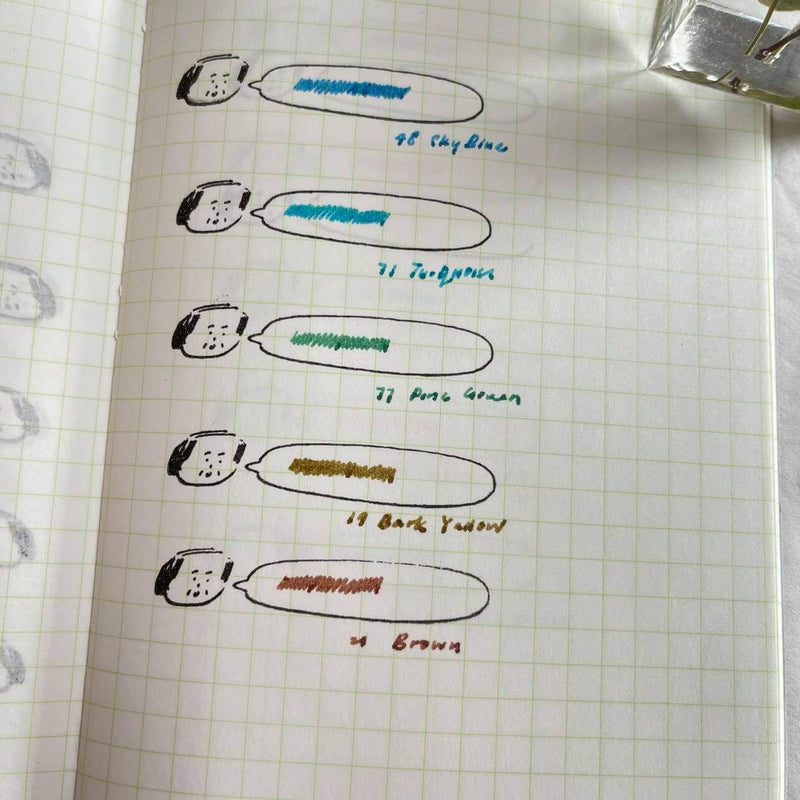 48 Sky Blue
71 Turquoise
77 Pine Green
19 Bark Yellow
Brown